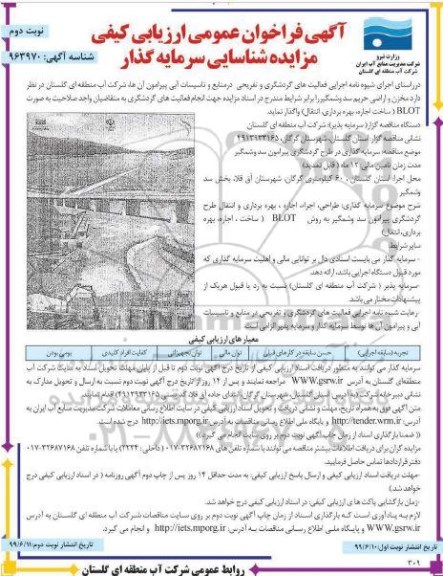 آگهی فراخوان عمومی ارزیابی کیفی
مزایده شناسایی سرمایه گذار
نوبت دوم
شناسه آگهی: ۹۶۳۹۷۰
وزارت نیرو
شرکت مدیریت منابع آب ایران
شرکت آب منطقه ای گلستان
در راستای اجرای شیوه نامه اجرایی فعالیت های گردشگری و تفریحی در منابع و تاسیسات آبی پیرامون آن ها، شرکت آب منطقه ای گلستان در نظر
دارد مخزن و اراضی حریم سد وشمگیر را برابر شرایط مندرج در اسناد مزایده جهت انجام فعالیت های گردشگری به متقاضیان واجد صلاحیت به صورت
BLOT ( ساخت اجاره، بهره برداری، انتقال) واگذار نماید.
دستگاه مناقصه گزار( سرمایه پذیر): شرکت آب منطقه ای گلستان
نشانی مناقصه گزار: استان گلستان، شهرستان گرگان،
موضع مناقصه: سرمایه گذاری در طرح گردشگری پیرامون سد وشمگیر
مدت زمان تامین مالی: ۱۲ ماه ( قابل تمدید)
محل اجرا: استان گلستان - ۶۰ کیلومتری گرگان، شهرستان آق قلا، بخش سد
وشمگیر
شرح موضوع سرمایه گذاری: طراحی، اجراء، اجاره ، بهره برداری و انتقال طرح
گردشگری پیرامون سد وشمگیر به روش BLOT ( ساخت ، اجاره، بهره
برداری، انتقال)
سایر شرایط
- سرمایه گذار می بایست اسنادی دال بر توانایی مالی و اهلیت سرمایه گذاری که
مورد قبول دستگاه اجرایی باشد، ارائه دهد.
- سرمایه پذیر ( شرکت آب منطقه ای گلستان) نسبت به رد یا قبول هریک از
پیشنهادات مختار می باشد
- رعایت شیوه نامه اجرایی فعالیت های گردشگری و تفریحی در منابع و تاسیسات
آبی و پیرامون آن ها توسط سرمایه گذار و سرمایه پذیر الزامی است.
معیارهای ارزیابی کیفی
تجربه (سابقه اجرایی) حسن سابقه در کارهای قبلی توان مالی توان تجهیزاتی کفایت افراد کلیدی بومی بودن
سرمایه گذار می توانند به منظور دریافت اسناد ارزیابی کیفی از تاریخ درج آگهی نوبت دوم
منطقه ای گلستان به آدرس WWW.gsrw.ir مراجعه نمایند و پس از ۱۴ روز از تاریخ درج آگهی نوبت دوم نسبت به ارسال و تحویل مدارک به
متن آگهی فوق به همراه تاریخ، مهلت و نشانی دریافت و تحویل اسناد ارزیابی کیفی در سایت اطلاع رسانی معاملات شرکت مدیریت منابع آب ایران به
آدرس http://tender.wrm.ir و پایگاه ملی اطلاع رسانی مناقصات به آدرس http://iets.mporg.ir درج شده است.
(( ضمنا بارگذاری اسناد از زمان چاپ آگهی نوبت دوم بر روی سایت انجام می گیرد.))
دفتر قراردادها تماس حاصل فرمایید.
-مهلت دریافت اسناد ارزیابی کیفی و ارسال پاسخ ارزیابی کیفی، به مدت حداقل ۱۴ روز پس از چاپ دوم آگهی روزنامه ( در اسناد ارزیابی کیفی درج
خواهد شد.)
-زمان بازگشایی پاکت ها ی ارزیابی کیفی: در اسناد ارزیابی کیفی درج خواهد شد.
لازم به یادآوری است که بارگذاری اسناد از زمان چاپ آگهی نوبت دوم بر روی سایت مناقصات شرکت آب منطقه ای گلستان به آدرس
WWW.gsrw.ir و پایگاه ملی اطلاع رسانی مناقصات به آدرس: http://iets.mporg.ir و انجام می گیرد.
تاریخ انتشار نوبت اول: ۹۹/۶/۱۰
تاریخ انتشار نوبت دوم: ۹۹/۶/۱۱
۳۰۹
روابط عمومی شرکت آب منطقه ای گلستان